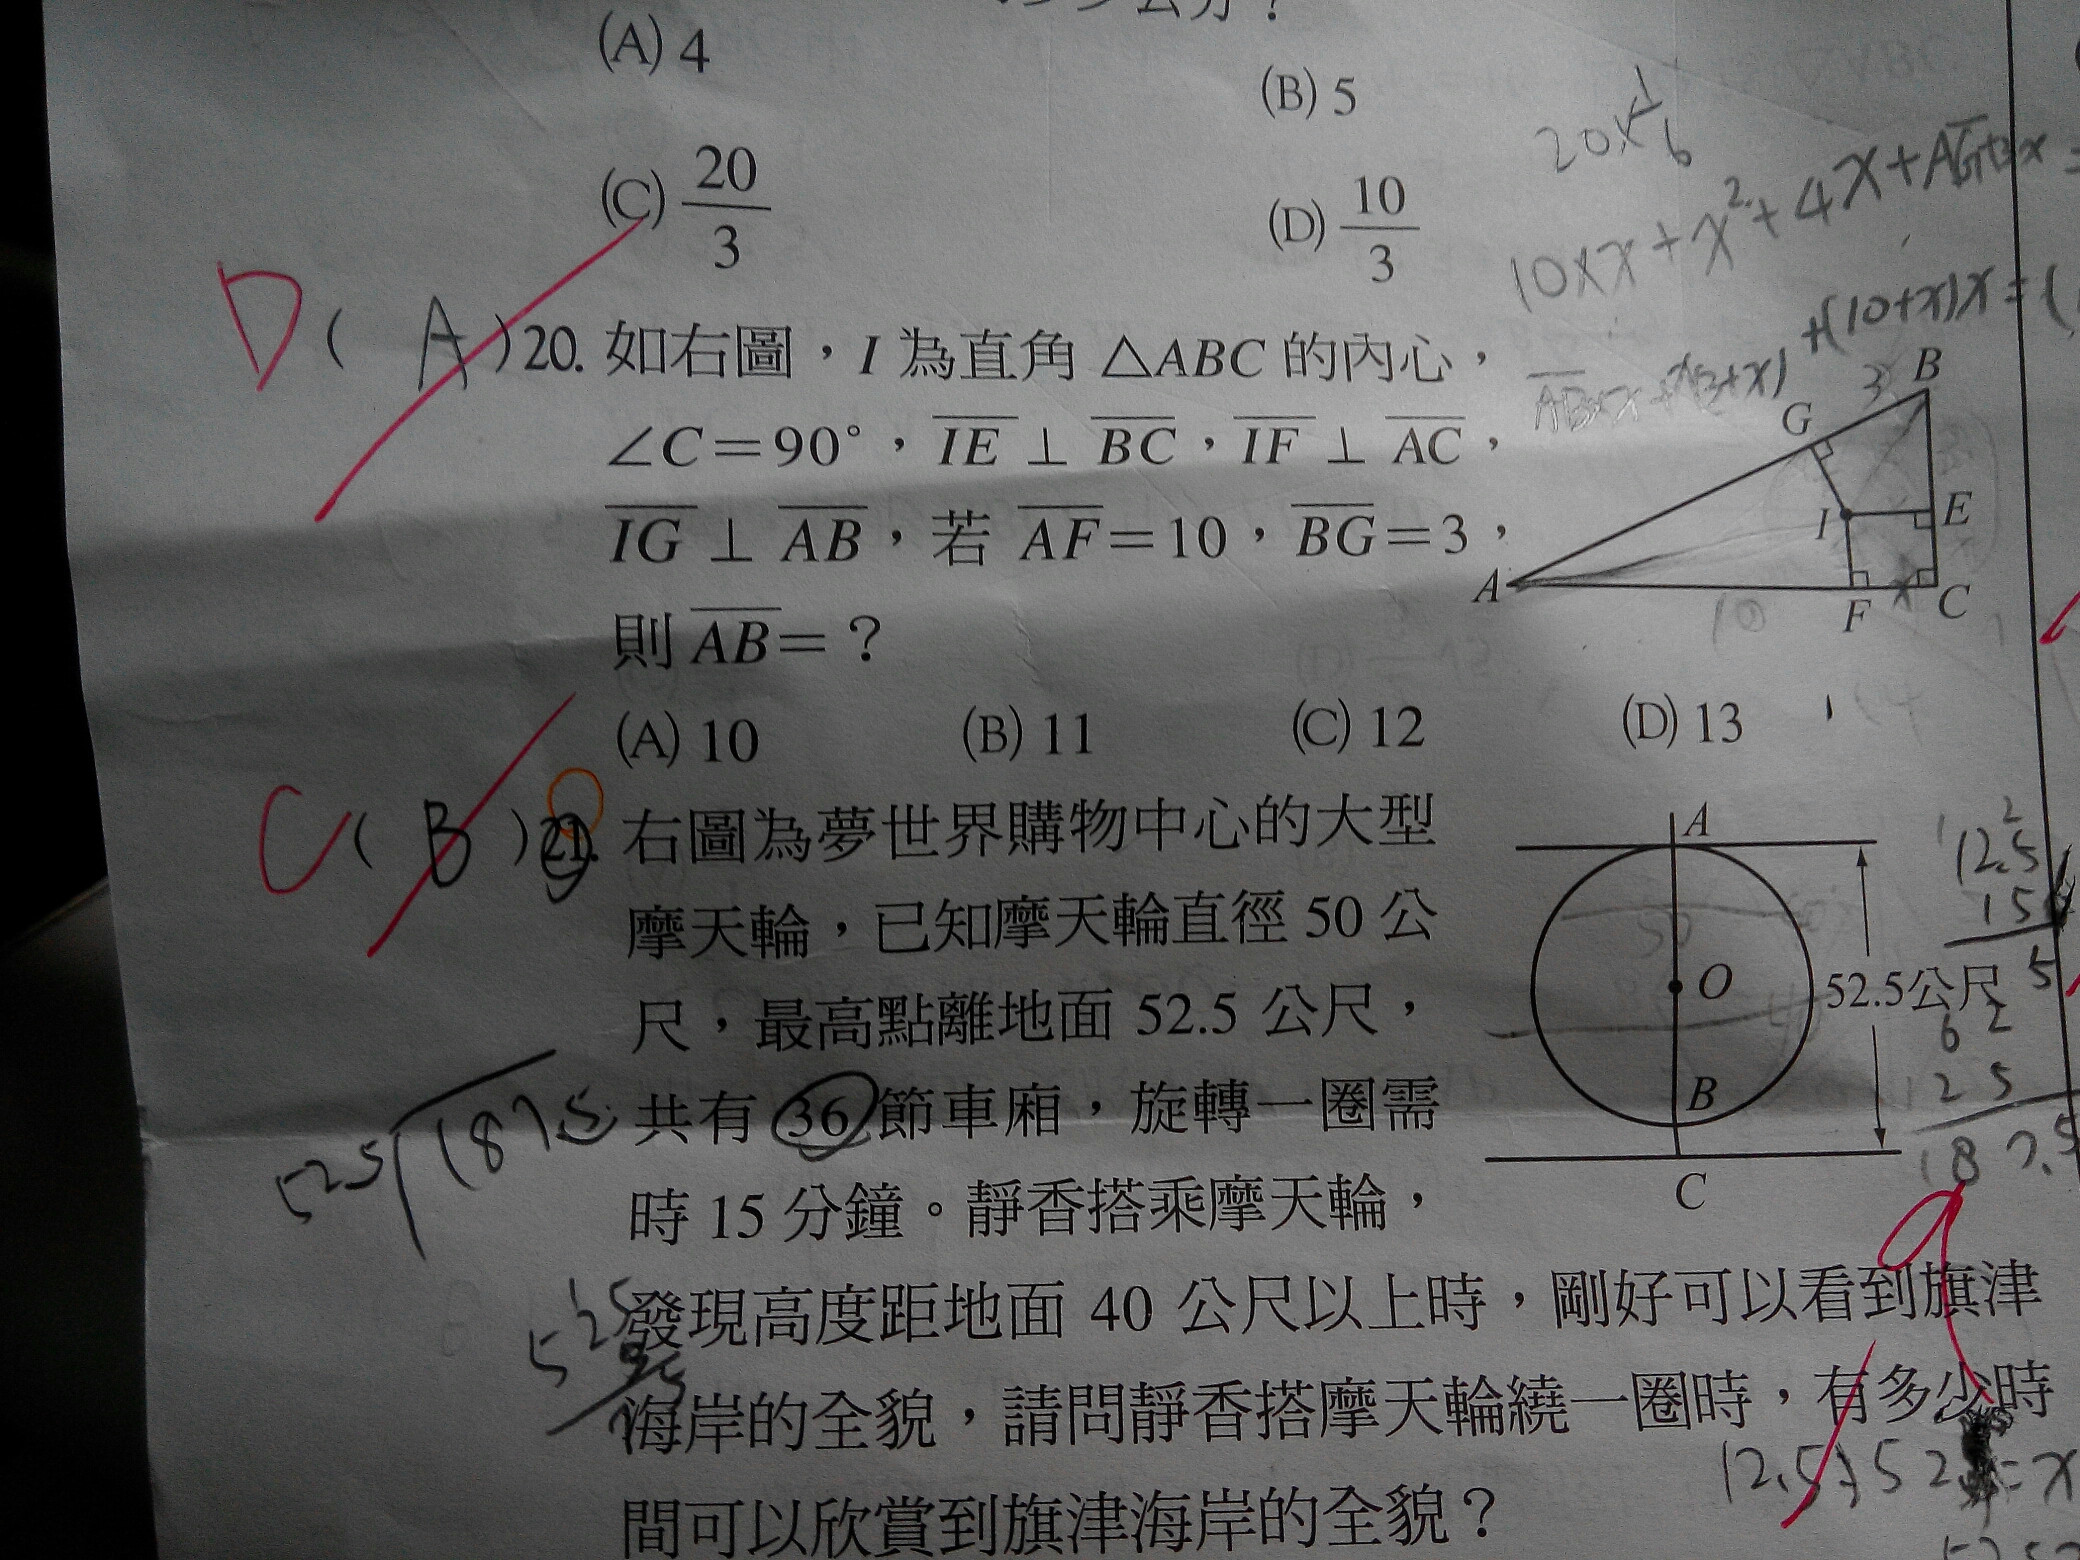 (A) 4
(B) 5
(C) 20/3
(D) 10/3
20×1/6
10×x+x²+4x+AG+3x=
+(10+x)x=(
D ( A )20. 如右圖，I 為直角 △ABC 的內心，
∠C＝90°，IE ⊥ BC，IF ⊥ AC，
IG ⊥ AB，若 AF＝10，BG＝3，
則 AB＝？
B
3
G
I
E
A
10
F
x
C
(A) 10 (B) 11 (C) 12 (D) 13
C ( B )21. 右圖為夢世界購物中心的大型
摩天輪，已知摩天輪直徑 50 公
尺，最高點離地面 52.5 公尺，
共有 36 節車廂，旋轉一圈需
時 15 分鐘。靜香搭乘摩天輪，
發現高度距地面 40 公尺以上時，剛好可以看到旗津
海岸的全貌，請問靜香搭摩天輪繞一圈時，有多少時
間可以欣賞到旗津海岸的全貌？
A
O
52.5公尺
B
C
12.5
15
62
5
125
187.5
525
1875